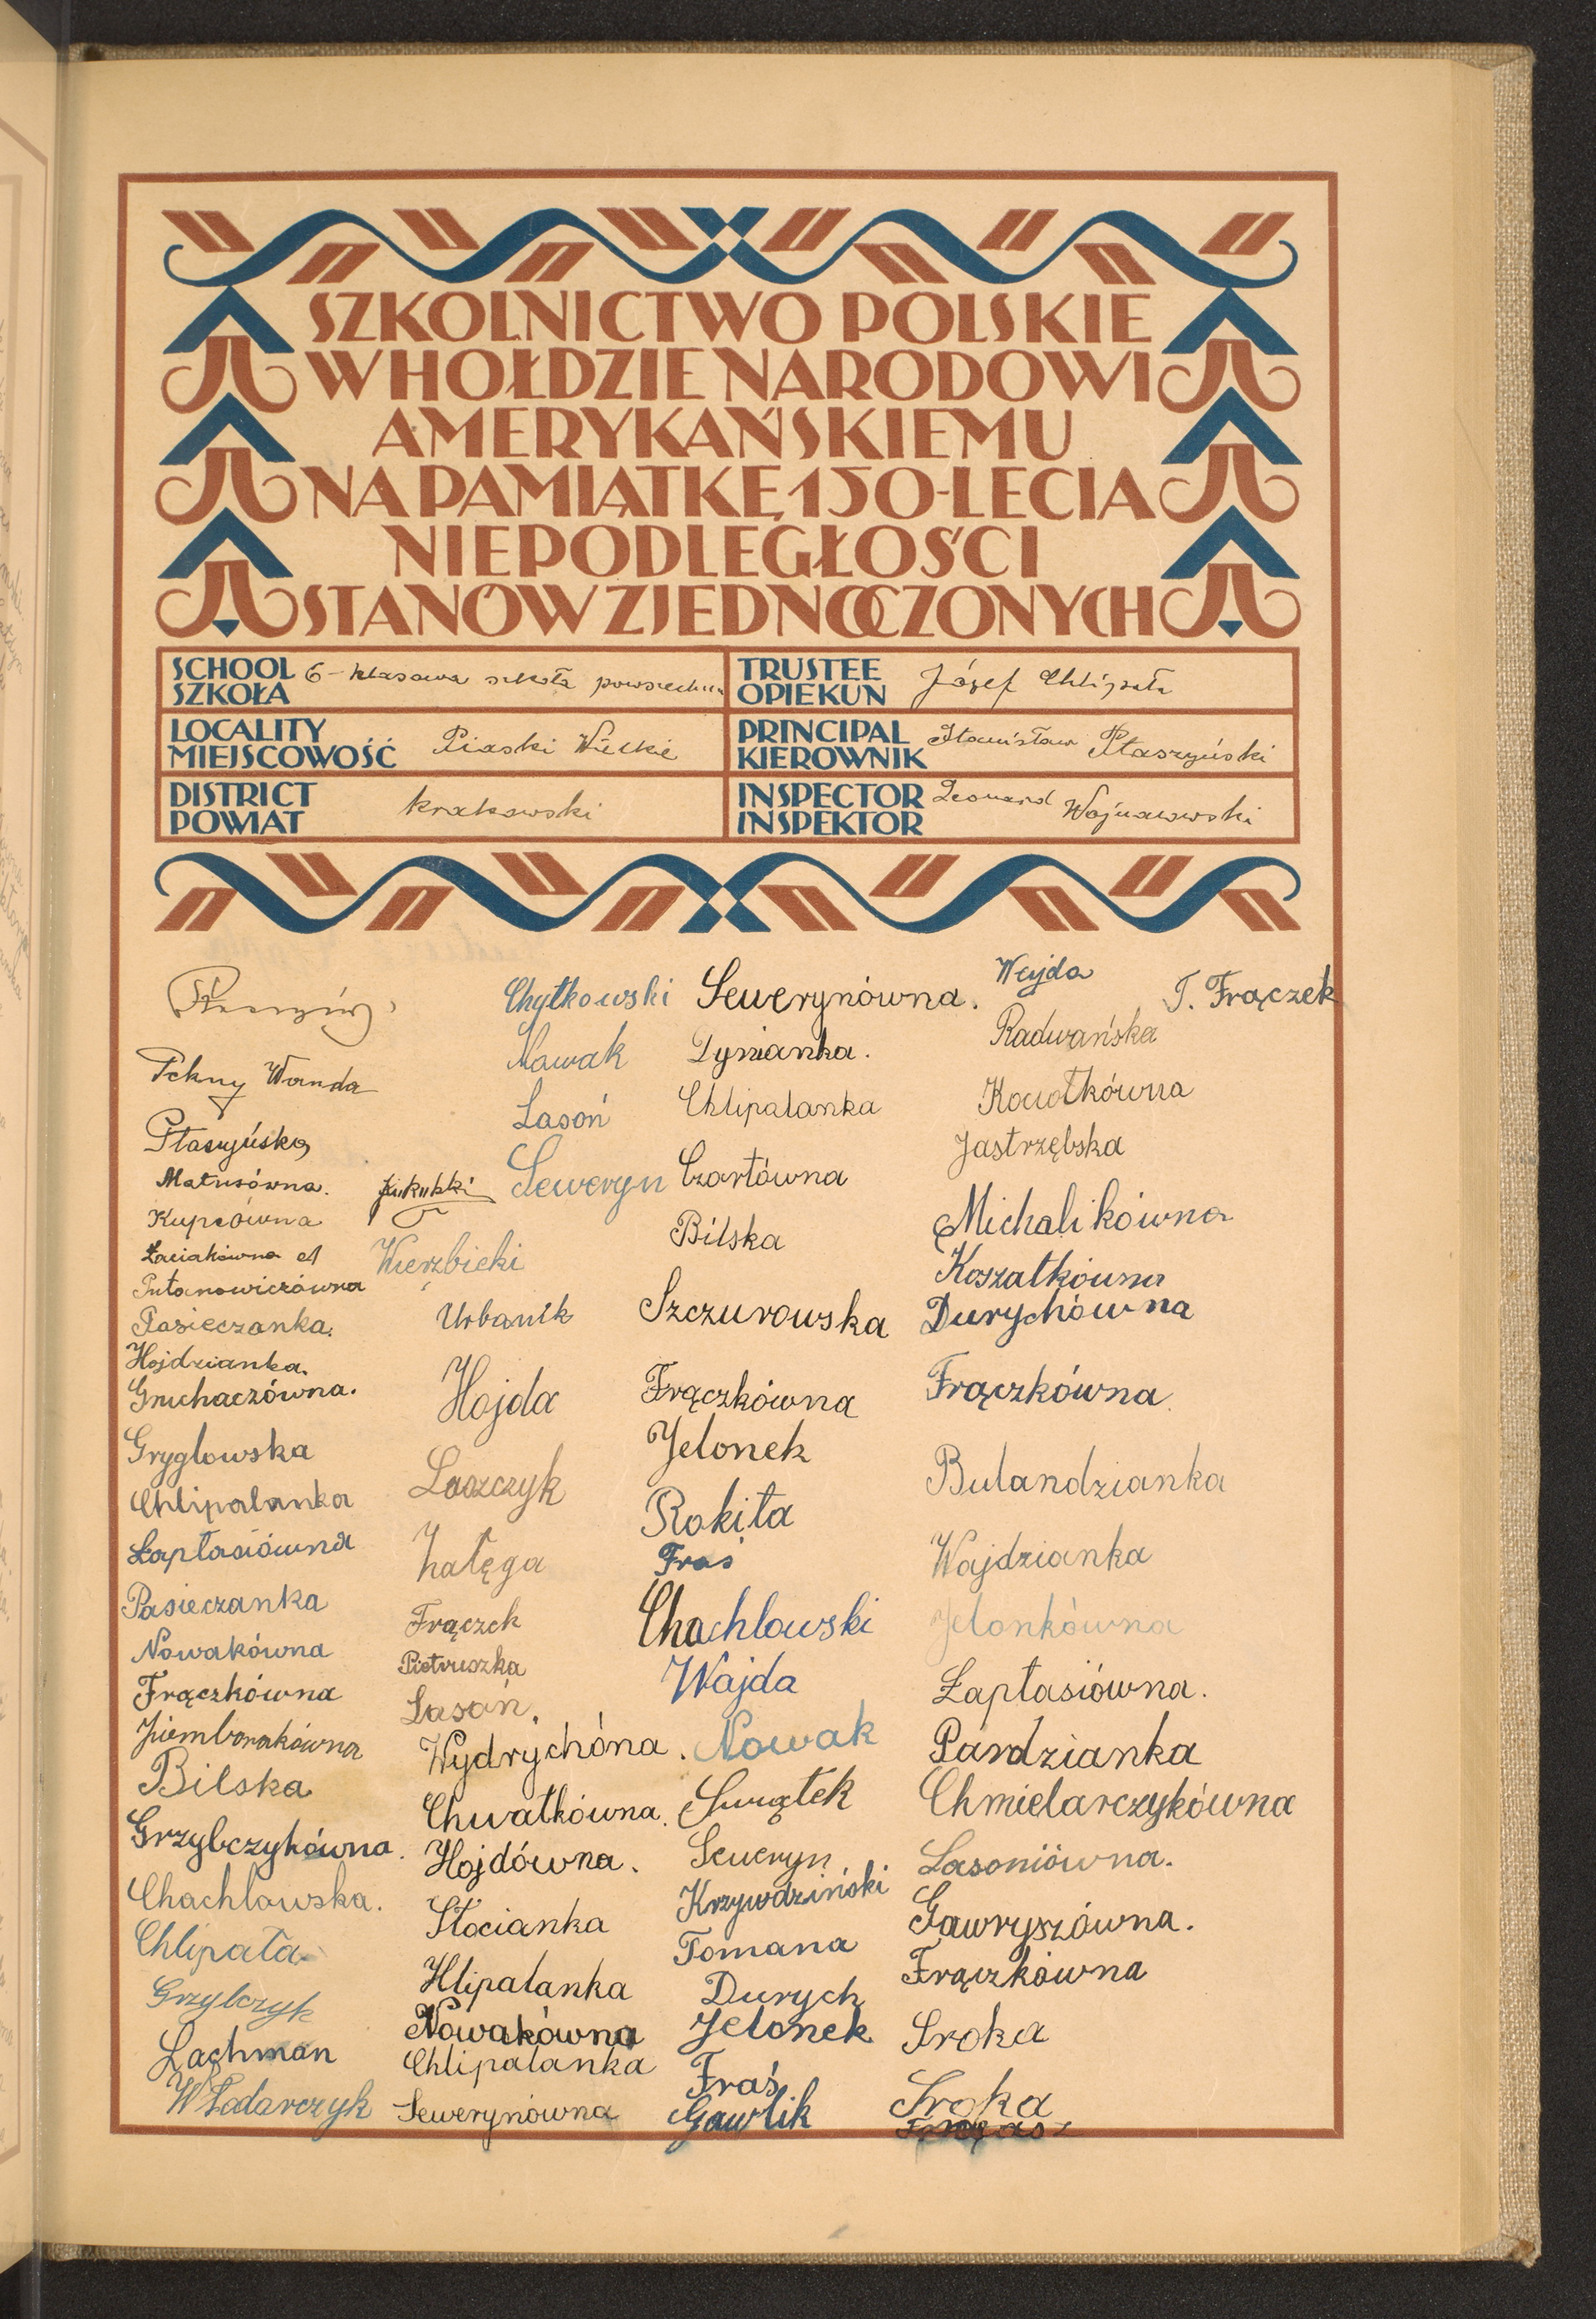 SZKOLNICTWO POLSKIE
W HOŁDZIE NARODOWI
AMERYKAŃSKIEMU
NA PAMIĄTKĘ 150-LECIA
NIEPODLEGŁOŚCI
STANÓW ZJEDNOCZONYCH
SCHOOL
SZKOŁA
6-klasowa szkoła powszechna
TRUSTEE
OPIEKUN
Józef Chlipała
LOCALITY
MIEJSCOWOŚĆ
Piaski Wielkie
PRINCIPAL
KIEROWNIK
Stanisław Ptaszyński
DISTRICT
POWIAT
krakowski
INSPECTOR
INSPEKTOR
Leonard Wojnarowski
Wanda
Ptaszyńska
Matusówna.
Kupcówna
Łaciakówna A
Pasieczanka.
Hojdzianka.
Gruchaczówna.
Gryglowska
Chlipalanka
Łaptasiówna
Pasieczanka
Nowakówna
Frączkówna
Ziemborakówna
Bilska
Grzybczykówna.
Chachlowska.
Chlipała
Grzybczyk
Lachman
Włodarczyk
Wierzbicki
Urbanik
Hojda
Laszczyk
Załęga
Frączek
Pietruszka
Lasoń.
Wydrychóna.
Chwatkówna.
Hojdówna.
Słocianka
Hlipalanka
Nowakówna
Chlipalanka
Sewerynówna
Chytkowski
Nawak
Lasoń
Seweryn
Sewerynówna.
Dynianka.
Chlipalanka
Czartówna
Bilska
Szczurowska
Frączkówna
Jelonek
Rokita
Fraś
Chachlowski
Wajda
Nowak
Swiątek
Seweryn
Krzywdziński
Tomana
Durych
Jelonek
Fraś
Gawlik
Wejda
Radwańska
Kowotkówna
Jastrzębska
Michalikówna
Koszatkówna
Durychówna
Frączkówna
Bulandzianka
Wajdzianka
Jelonkówna
Łaptasiówna.
Pardzianka
Chmielarczykówna
Lasoniówna.
Gawryszówna.
Frączkówna
Sroka
Sroka
T. Frączek